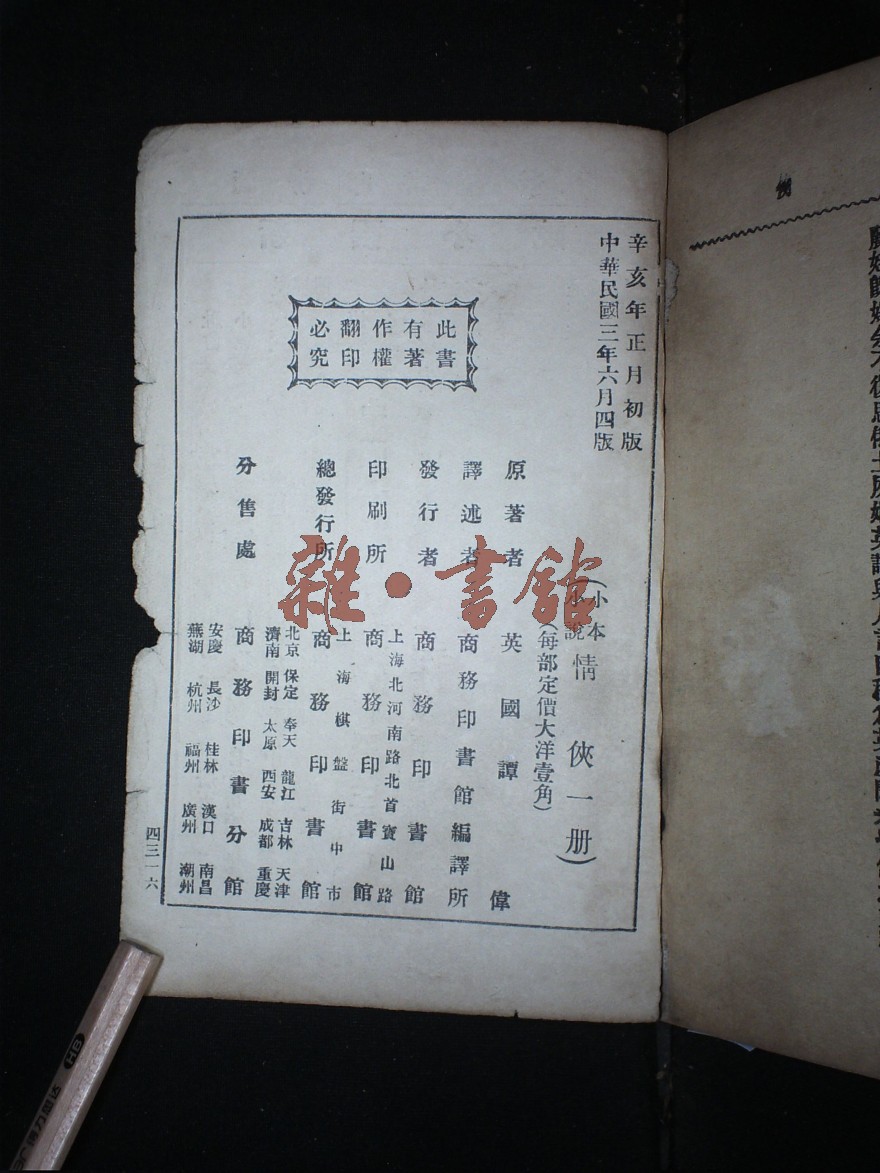 辛亥年正月初版
中華民國三年六月四版
此書
有著
作權
翻印
必究
(小本小說情俠一册)
(每部定價大洋壹角)
原著者 英國譚偉
譯述者 商務印書館編譯所
發行者 商務印書館
上海北河南路北首寶山路
印刷所 商務印書館
上海棋盤街中市
總發行所 商務印書館
北京 保定 奉天 龍江 吉林 天津
濟南 開封 太原 西安 成都 重慶
分售處 商務印書分館
安慶 長沙 桂林 漢口 南昌
蕪湖 杭州 福州 廣州 潮州
四三一六
雜·書館
HB